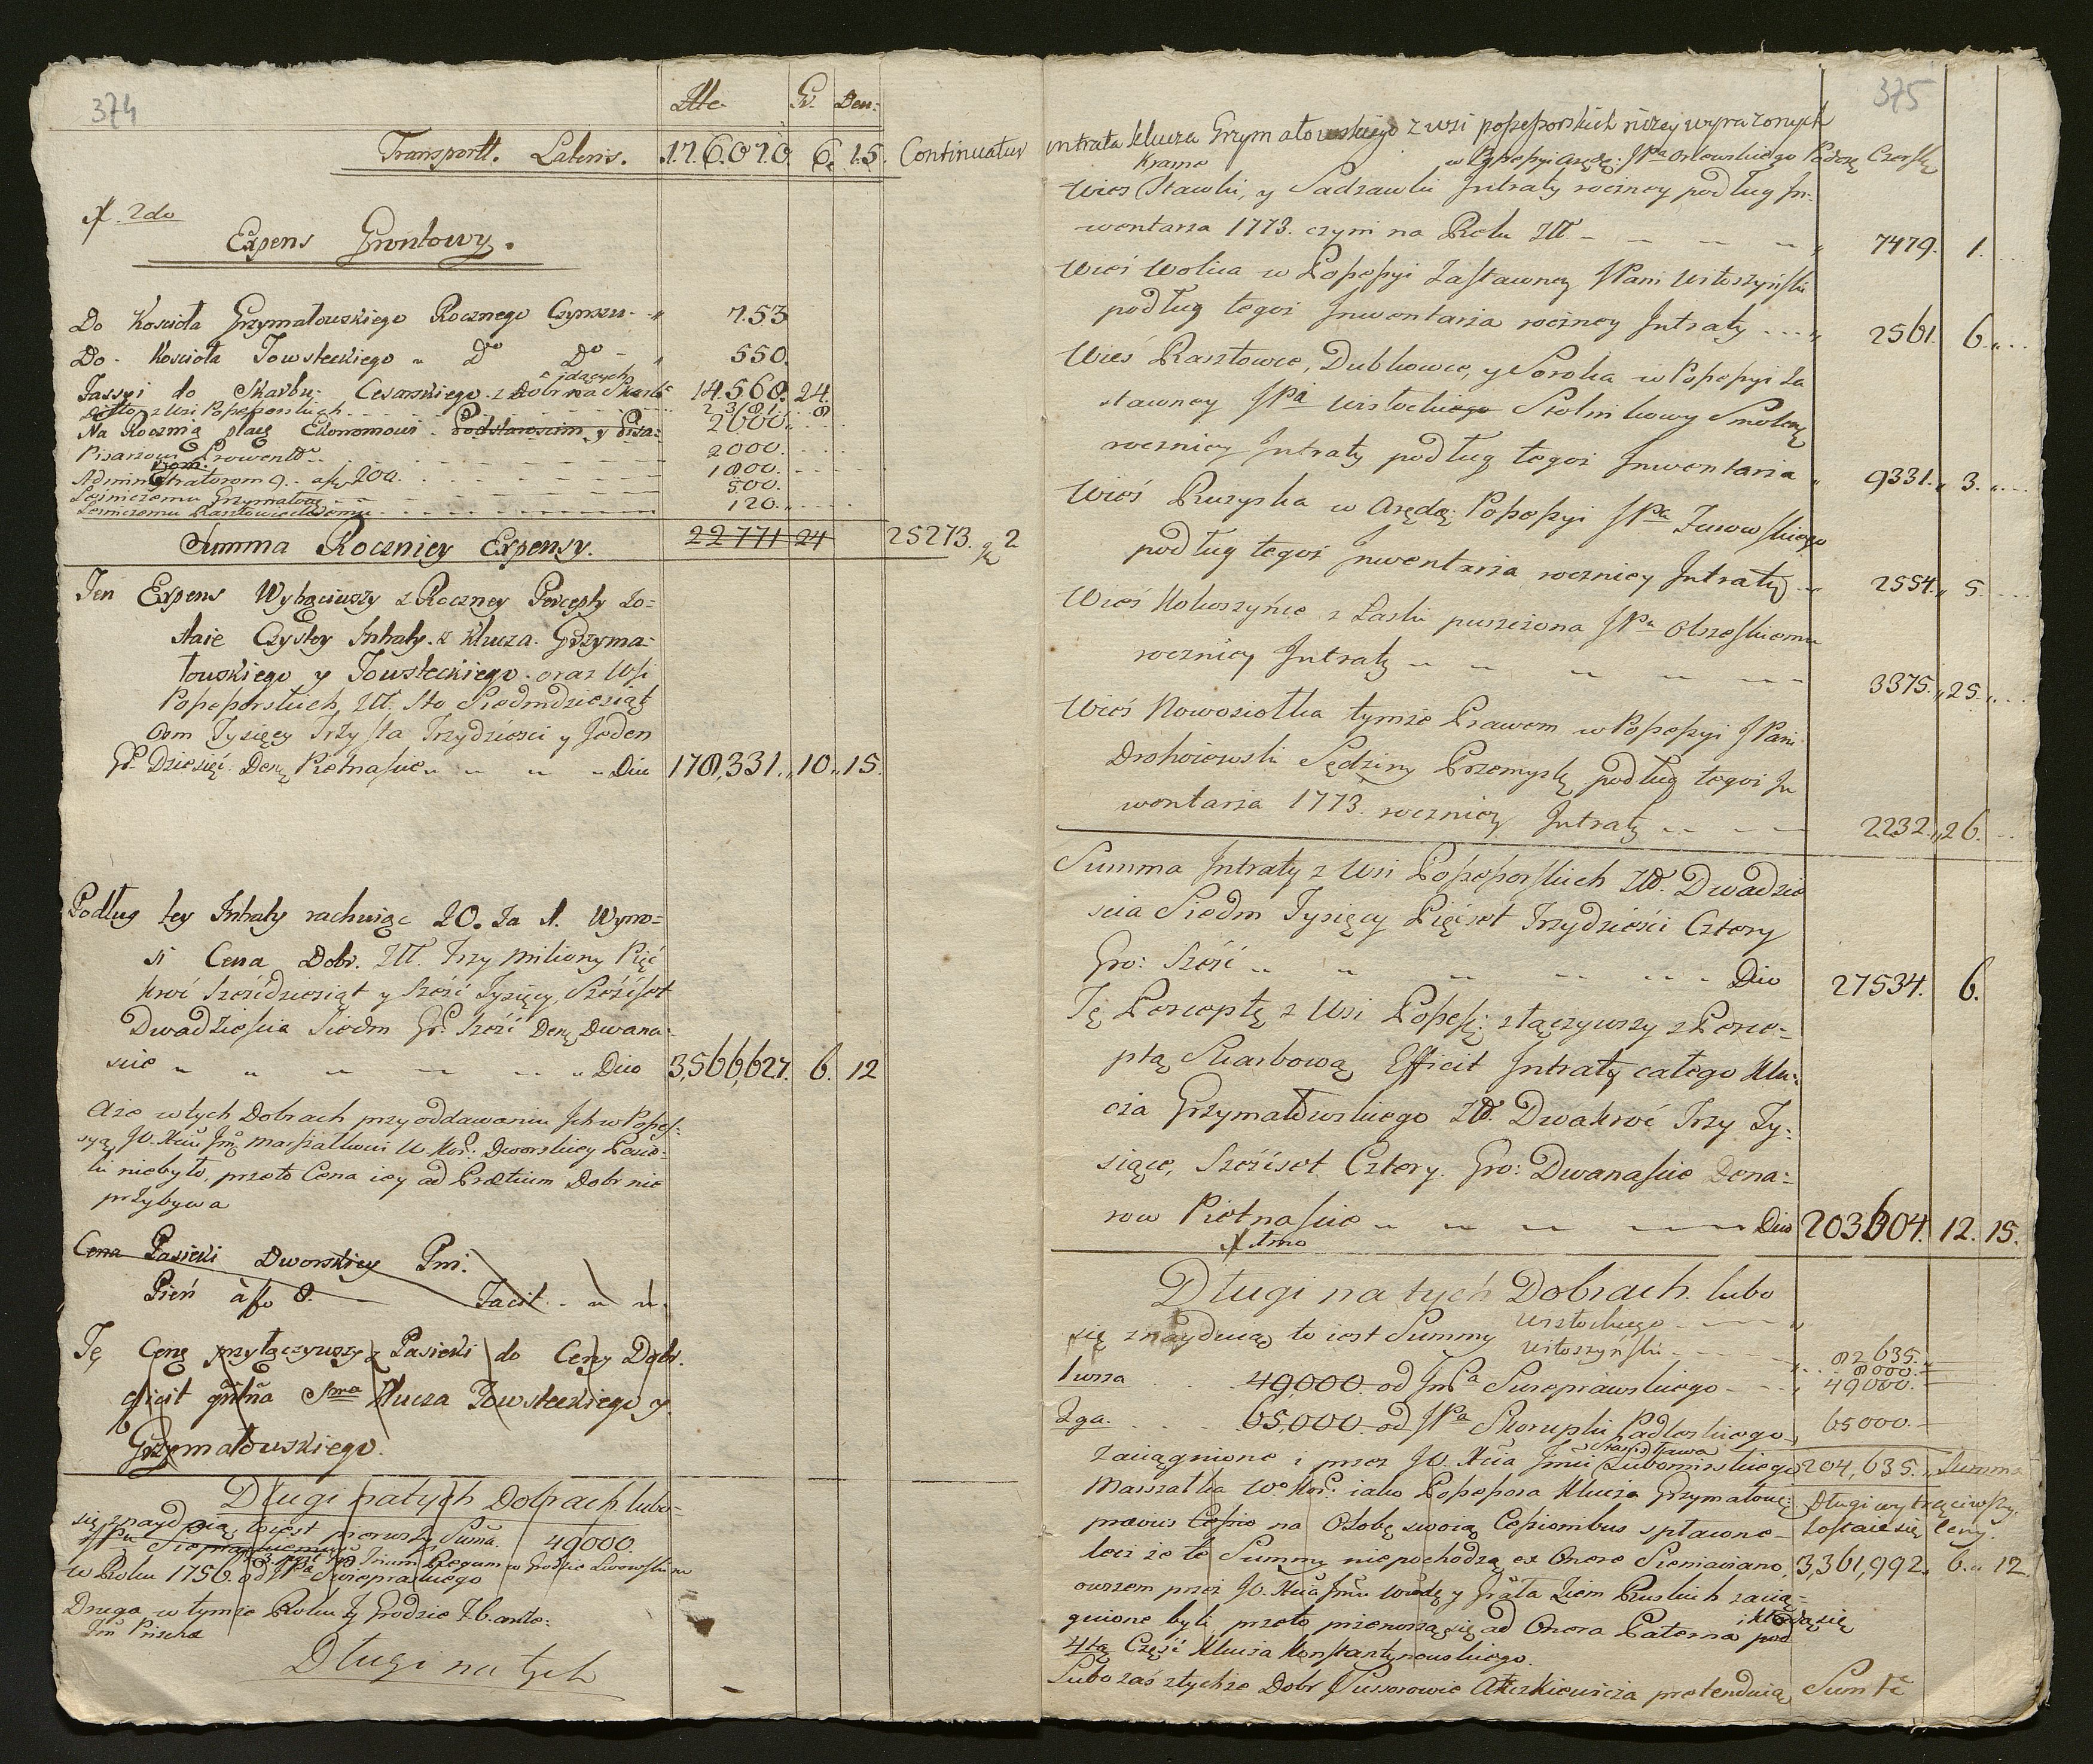 374
Złte Gr. Den:
Transportt. Lateris. 176.070. 6. 15. Continuatur
2do
Expens Grontowy.
Do Kościoła Grzymałowskiego Rocznego Czynszu 753
Do Kościoła Towsteckiego Do Do 550.
Tasspi do Skarbu Cesarskiego z Dobr na Skarb idących 14.560. 24.
Na Roczną płacę Ekonomowi Podstarościm y Pisa: 2600.
Pisarzowi Prowentt. 2000.
Administratorom 9. a 200. 1800.
Leśniczemu Grzymałow 500.
Leśniczemu Rasztowieckiemu 120.
Summa Roczniey Expensy. 22771 24 25273. 2
Ten Expens Wytrąciwszy z Roczney Percepty Zo=
staie Czystey Intraty z Klucza Grzyma=
łowskiego y Towsteckiego oraz Wsi
Possessorskich Złł. Sto Siedmdziesiąt
Osm Tysięcy Trzysta Trzydzieści y Jeden
Gr. Dziesięć Den. Piętnaście Dico 178,331. 10. 15.
Podług tey Intraty rachuiąc 20. Za 1. Wyno=
si Cena Dobr. Złł. Trzy Miliony Pięć
kroć Sześćdziesiąt y Sześć Tysięcy, Sześćset
Dwadzieścia Siedm Gr. Sześć Den. Dwana=
scie Dico 3,566,627. 6. 12
A że w tych Dobrach przy oddawaniu Ich w Posses=
syą JO. Xciu Jmć Marszałkowi W. Kor. Dworskiey Pasie=
ki niebyło, przeto Cena iey ad Prætium Dobr nie
przybywa
Cena Pasieki Dworskiey Pni.
Pień à 8. Facit
Tę Cenę przyłączywszy z Pasieki do Ceny Dobr.
efficit Sma Klucza Towsteckiego y
Grzymałowskiego.
Długi na tych Dobrach lubo
się znayduią, to iest pierwsza Suma 49000.
w Roku 1756. od JPa Suseprawskiego
Druga w tymże Roku y Grodzie
Długi na tych
375
Intrata klucza Grzymałowskiego z wsi possessorskich niżey wyrażonych
Krame
w Possessyi Arędą: JPa Orłowskiego Podczę Czerskę
Wieś Stawki, y Sadzawki Intraty roczney podług In=
wentarza 1773. czyni na Roku Złł. 7479. 1.
Wieś Wolica w Possessyi Zastawney JPani Witoszyński
podług tegoż Inwentarza roczney Intraty 2561. 6.
Wieś Rasztowce, Dubkowce, y Soroka w Possessyi Za
stawney JPa Wisłockiego Stolnikowy Smoleń
roczniey Intraty podług tegoż Inwentarza 9331. 3.
Wieś Ruzyska w Arędą: Possessyi JPa Turowskiego
podług tegoż Inwentarza roczniey Intraty 2554. 5.
Wieś Kokoszyńce z Łaski puszczona JPu Olszeskiemu
roczniey Intraty 3375. 25.
Wieś Nowosiołka tymże Prawem w Possessyi JPani
Drohoiewski Sędziny Przemyslę, podług tegoż In
wentarza 1773. roczniey Intraty 2232. 26.
Summa Intraty z Wsi Possessorskich Złł. Dwadzie
scia Siedm Tysięcy Pięćset Trzydzieści Cztery
Gro: Sześć Dico 27534. 6.
Tę Perceptę z Wsi Possess: złączywszy z Perce=
ptą Skarbową Efficit Intraty całego Klu=
cza Grzymałowskiego Złł. Dwakroć Trzy Ty=
siące, Sześćset Cztery. Gro: Dwanaście Dena=
row Piętnaście Dico 203604. 12. 15.
Długi na tych Dobrach lubo
się znayduią to iest Summy Wisłockiego 82635.
Witoszyński 8000.
1wsza 49,000. od JmPa Suseprawskiego 49000.
2ga 65,000. od JPa Skarupki Padloskiego 65000.
zaciągnione i przez JO. Xcia Jmći Stanisława Lubomirskiego 204,635. Summa
Marszałka Wo Kor. iako Possessora Klucza Grzymałow: Długi wytrąciwszy
prawis Cessio na Osobę swoią Cessionibus spławne zostaie się ceny.
lecz że te Summy niepochodzą ex Onere Sieniaviano, 3,361,992. 6. 12
owszem przez JO. Xcia Jmci Wwdę y Jrała Ziem Ruskich zacią=
gnione byli, przeto przenoszą się ad Onera Paterna i kładą się pod
4tą Część Klucza Konstantynowskiego.
Lubo zaś z tychże Dobr Sussorowie Atuszkiewicza pretenduią Sum tę